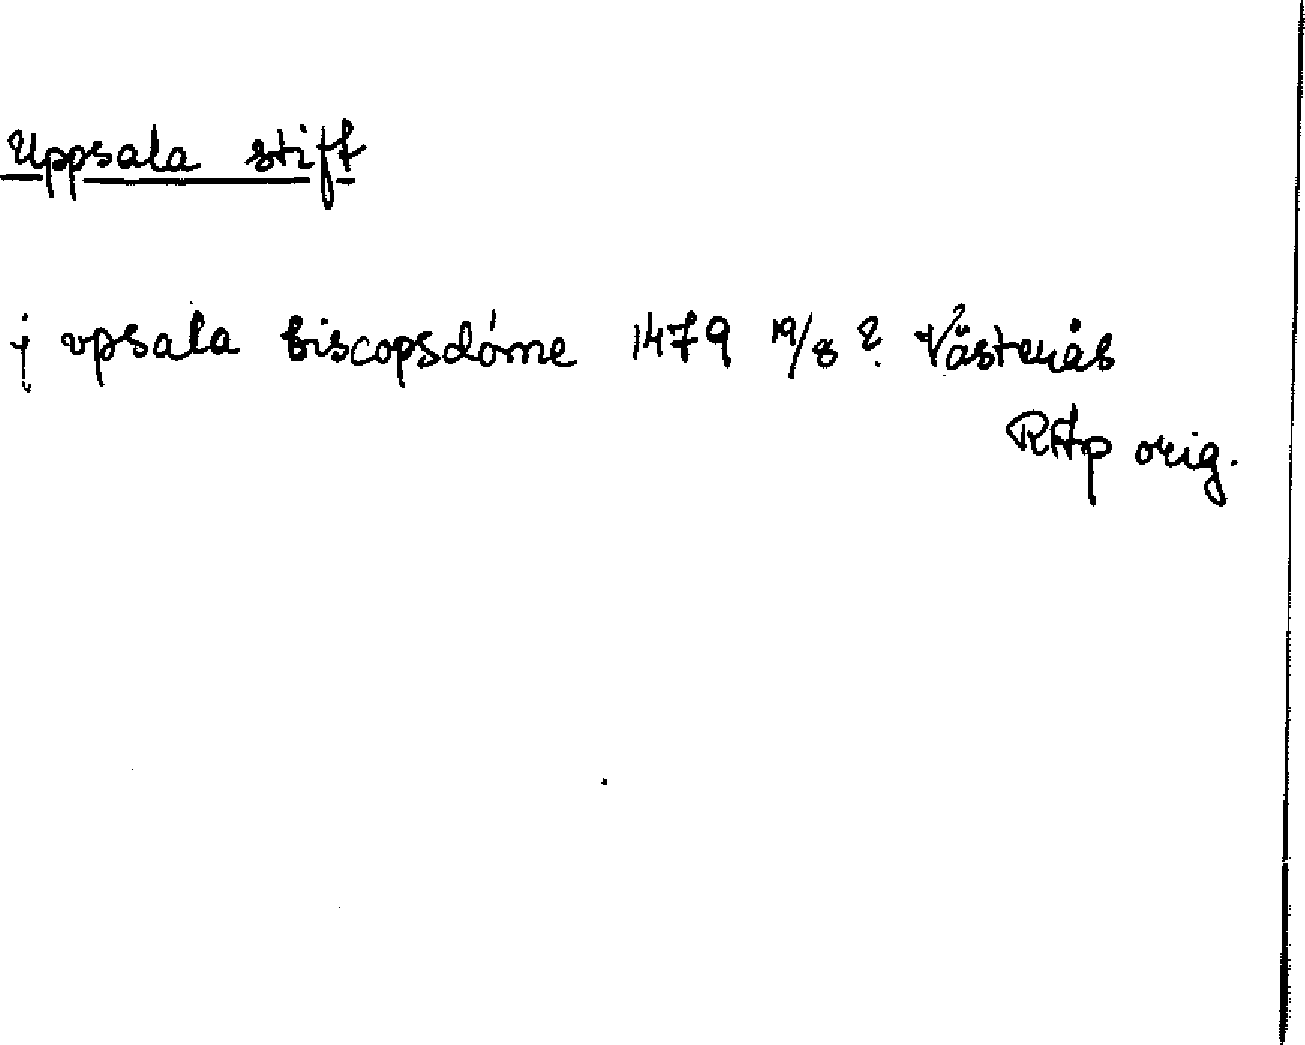 Uppsala stift
j vpsala biscopsdóme 1479 19/8 ? Västerås
RAp orig.